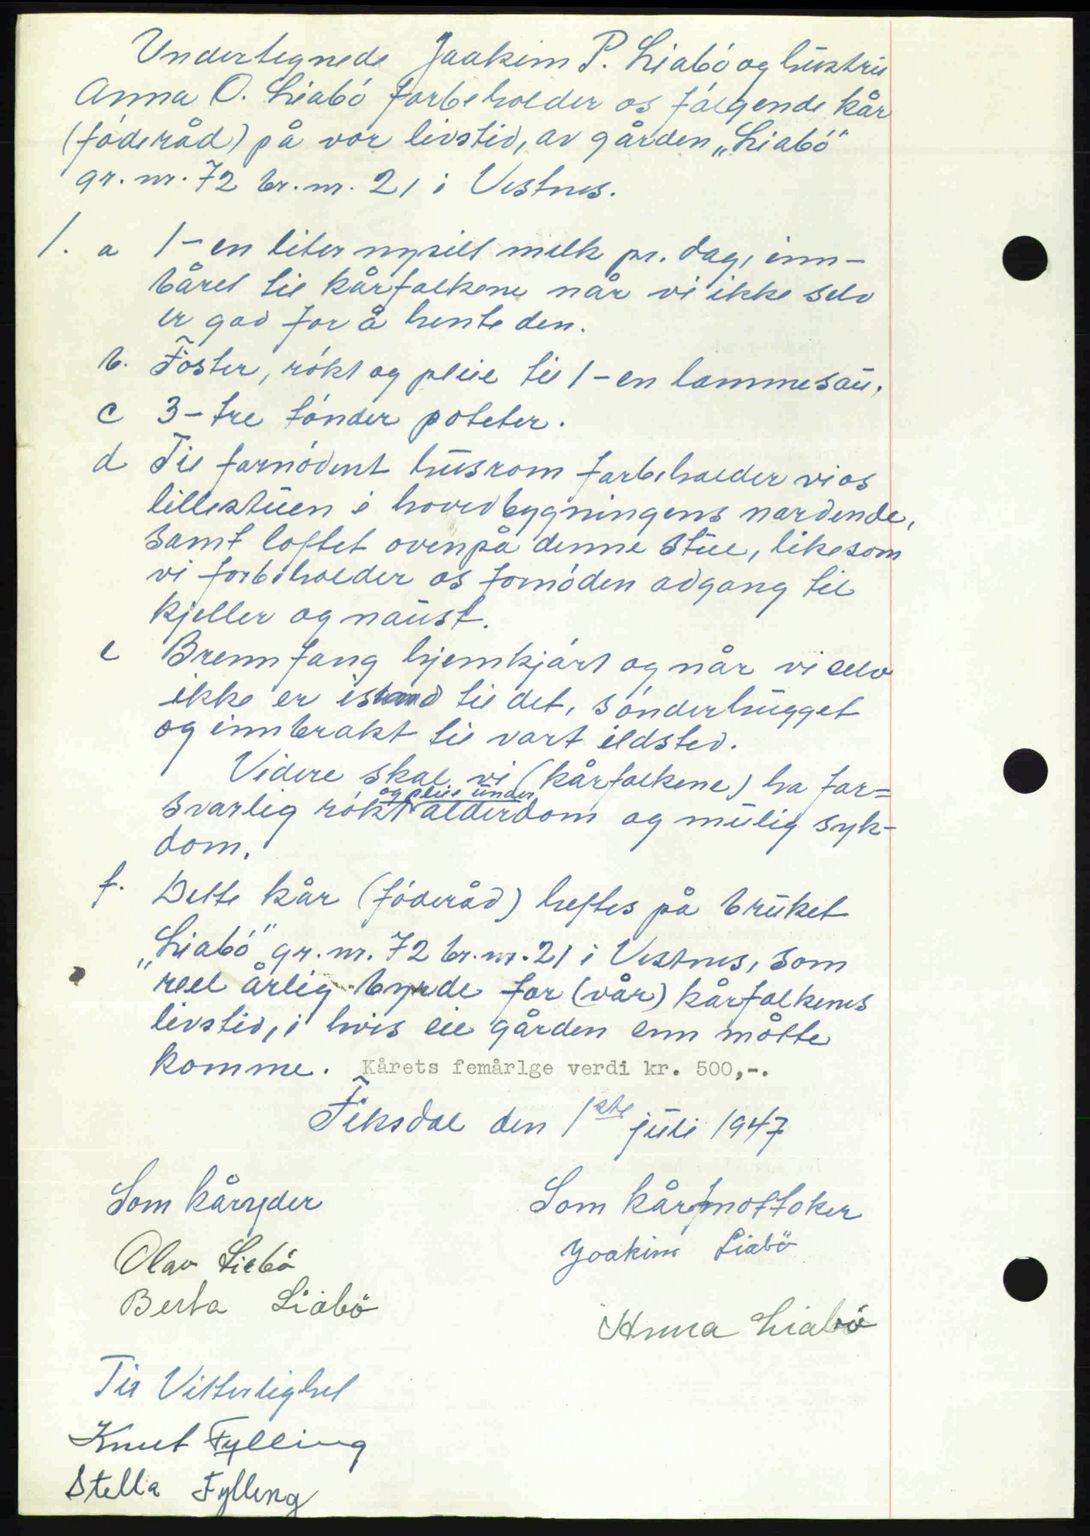 Undertegnede Joakim P. Liabö og hustru
Anna O. Liabö forbeholder os fölgende kår
(föderåd) på vor livstid, av gården „Liabö"
gr. nr. 72 br. nr. 21 i Vestnes.
1. a 1 - en liter nysilt melk pr. dag, inn-
båret til kårfolkene når vi ikke selv
er god for å hente den.
b. Foster, rökt og pleie til 1 - en lammesau.
c 3 - tre tönder poteter.
d Til fornödent husrom forbeholder vi os
lillestuen i hovedbygningens nordende,
samt loftet ovenpå denne stue, likesom
vi forbeholder os fornöden adgang til
kjeller og naust.
e Brennfang hjemkjört og når vi selv
ikke er istand til det, sönderhugget
og innbrakt til vort ildsted.
Videre skal vi (kårfolkene) ha for=
og pleie under
svarlig rökt alderdom og mulig syk-
dom.
f. Dette kår (föderåd) heftes på bruket
„Liabö" gr. nr. 72 br. nr. 21 i Vestnes, som
reel årlig byrde for (vår) kårfolkenes
livstid, i hvis eie gården enn måtte
komme. Kårets femårlge verdi kr. 500,-.
Fiksdal den 1ste juli 1947
Som kåryder Som kårmottoker
Olav Liabö Joakim Liabö
Berta Liabö Anna Liabö
Til Vitterlighet
Knut Fylling
Stella Fylling